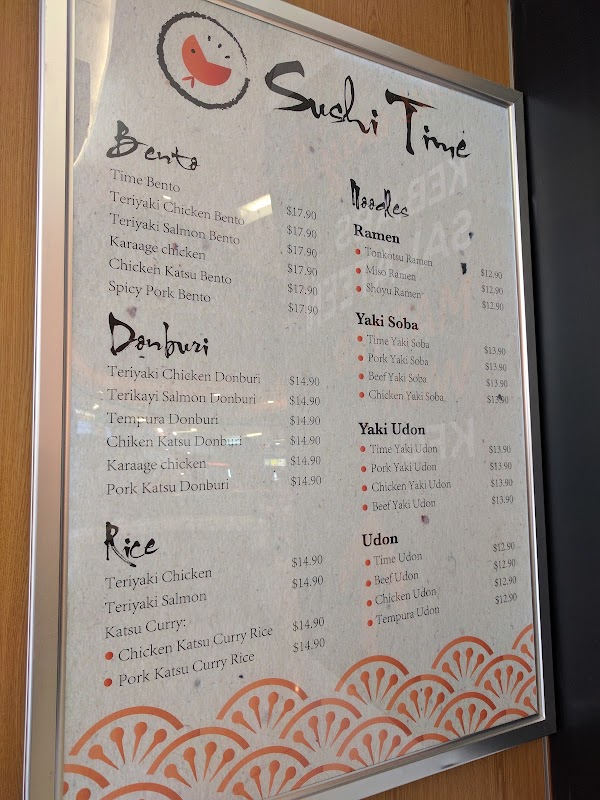 Sushi Time
Bento
Time Bento $17.90
Teriyaki Chicken Bento $17.90
Teriyaki Salmon Bento $17.90
Karaage chicken $17.90
Chicken Katsu Bento $17.90
Spicy Pork Bento $17.90
Donburi
Teriyaki Chicken Donburi $14.90
Terikayi Salmon Donburi $14.90
Tempura Donburi $14.90
Chiken Katsu Donburi $14.90
Karaage chicken $14.90
Pork Katsu Donburi $14.90
Rice
Teriyaki Chicken $14.90
Teriyaki Salmon $14.90
Katsu Curry:
Chicken Katsu Curry Rice $14.90
Pork Katsu Curry Rice $14.90
Noodles
Ramen
Tonkotsu Ramen $12.90
Miso Ramen $12.90
Shoyu Ramen $12.90
Yaki Soba
Time Yaki Soba $13.90
Pork Yaki Soba $13.90
Beef Yaki Soba $13.90
Chicken Yaki Soba $13.90
Yaki Udon
Time Yaki Udon $13.90
Pork Yaki Udon $13.90
Chicken Yaki Udon $13.90
Beef Yaki Udon $13.90
Udon
Time Udon $12.90
Beef Udon $12.90
Chicken Udon $12.90
Tempura Udon $12.90